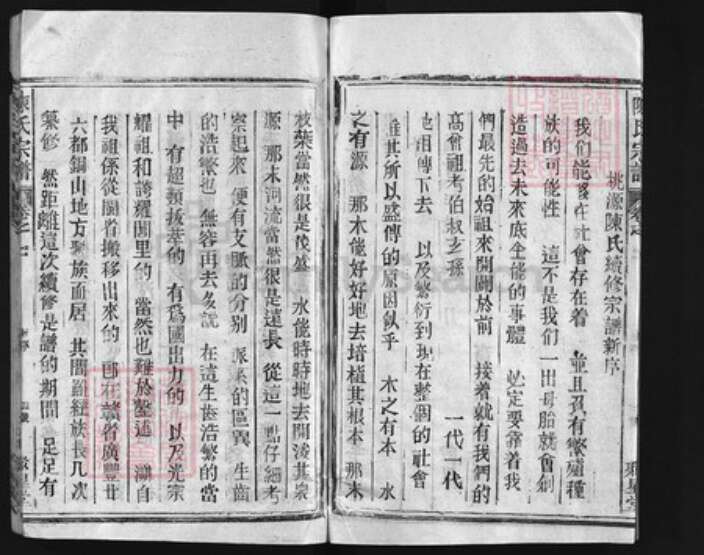 桃源陳氏續修宗譜新序
我们能够在社會存在着　並且負有繁殖種
族的可能性　這不是我们一出母胎就會創
造過去未來底全能的事體　必定要靠着我
們最先的始祖來開闢於前　接着就有我們的
高曾祖考伯叔玄孫　一代一代
地相傳下去　以及繁衍到現在整個的社會
推其所以盛傳的原因似乎　木之有本　水
之有源　那木能好好地去培植其根本　那末
枝葉當然很是茂盛　水能時時地去開淩其泉
源　那末河流當然很是遠長　從這一點仔細考
察起來　便有支脈的分别　派系的區異　生齒
的浩繁也　無容再去多説　在這生齒浩繁的當
中　有超類拔萃的　有為國出力的　以及光宗
耀祖和誇耀閭里的　當然也難於盡述　溯自
我祖係從閩省搬移出來的　卽在贛省廣豐廿
六都銅山地方聚族而居　其間雖經族長几次
纂修　然距離這次續修是譜的期間　足足有
陳氏宗譜
陳氏宗譜